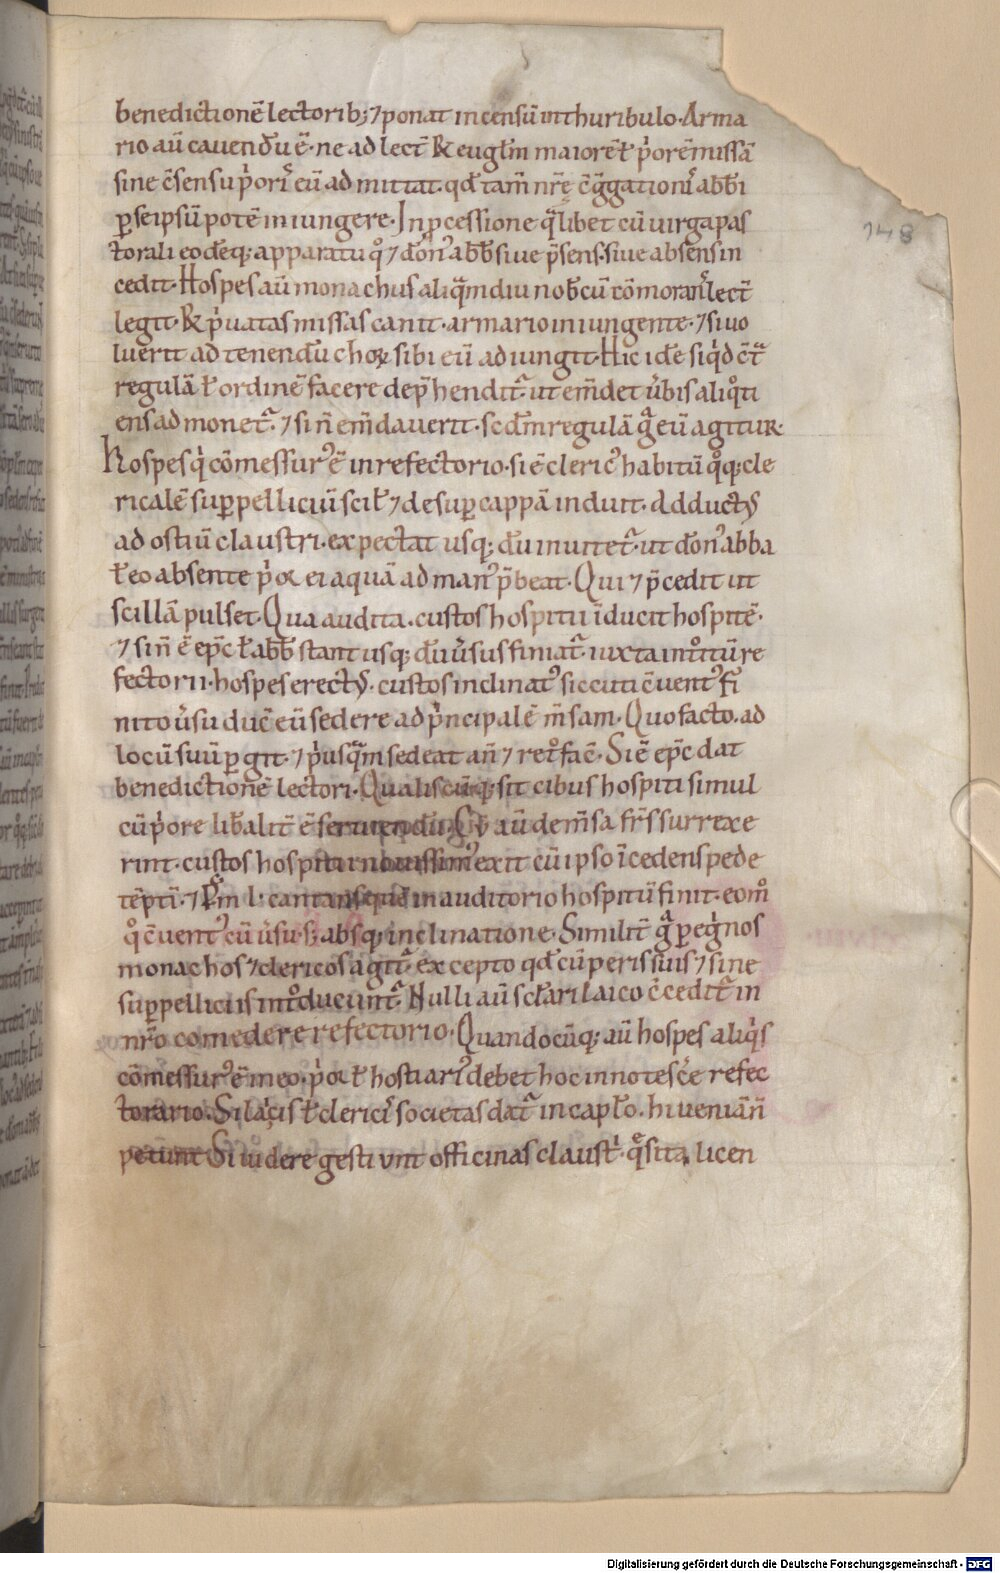 benedictionē lectorib; ⁊ ponat incensū in thuribulo. Arma
rio aū cavendū ē. ne ad lect̄ & euḡlm maiorē ł p̍orē missā
sine c̄sensu p̍oris̄ eū admittat. qđ tam̄ nr̄ę c̄g̃gationis̄ abb̄i
ꝑ seipsū potē iniungere. In ꝓcessione q̃libet cū virga pas
torali eodēq; apparatu qͦ ⁊ don᷒ abb̄ sive p̄sens. sive absens in
cedit. Hospes aū monachus aliq̃mdiu nob̄cū cōmorans̄ lect̄
legit. & p̍vatas missas canit. armario iniungente. ⁊ si vo
luerit ad tenendū choꝝ sibi eū adiungit. Hic idē siq̍d c̄t̃
regulā ł ordinē facere dep̄hendit᷑. ut em̄det v̄bis aliqͦti
ens admonet᷑. ⁊ si n̄ em̄daverit. scđm regulā q̃ eū agitur.
Hospes q̍ cōmessur᷒ ē in refectorio. si ē cleric᷒ habitū qͦq; cle
ricalē suꝑpelliciū scił ⁊ desuꝑ cappā induit. Adduct᷒
ad ostiū claustri. expectat usq; dū invitet᷑. ut don᷒ abba
ł eo absente p̍or ei aquā ad man᷒ p̄beat. Qui ⁊ p̄cedit ut
scillā pulset. Qua audita. custos hospitū īducit hospitē.
⁊ si n̄ ē ep̄c ł abb̄ stant usq; dū v̄sus finiat᷑. iuxta intͦitū re
fectorii. hospes erect᷒. custos inclinat᷒ sic cuti c̄vent᷒. Fi
nito v̄su duc̄ eū sedere ad p̍ncipalē m̄sam. Quo facto. ad
locū suū ꝑgit. ⁊ p̍usq̃m sedeat an̄ ⁊ retͦ fac̄. Si ē ep̄c dat
benedictionē lectori. Qualiscūq; sit cibus hospiti simul
cū p̍ore lib̄alit̄ ē serviendū. Cū aū de m̄sa fr̄s surrexe
rint. custos hospitū novissim᷒ exit cū ipso īcedens pede
tēptī. ⁊ Psm̄ l. cantans quē in auditorio hospitū finit. eo mͦ
qͦ c̄vent᷒ cū v̄su. s; absq; inclinatione. Similit̄ q̃ ꝑeg̍nos
monachos ⁊ clericos agit᷑. excepto qđ cū peris suis ⁊ sine
suꝑpelliciis intͦducunt᷑. Nulli aū sc̄lari laico c̄cedit᷑ in
nr̄o comedere refectorio. Quandocūq; aū hospes aliq̍s
cōmessur᷒ ē in eo. p̍or ł hostiari᷒ debet hoc innotesc̄e refec
torario. Si laicis ł clericis̄ societas dat᷑ in capłō. hi veniā n̄
petunt. Si videre gestiunt officinas claustri. q̄sita licen
148
Digitalisierung gefördert durch die Deutsche Forschungsgemeinschaft - DFG